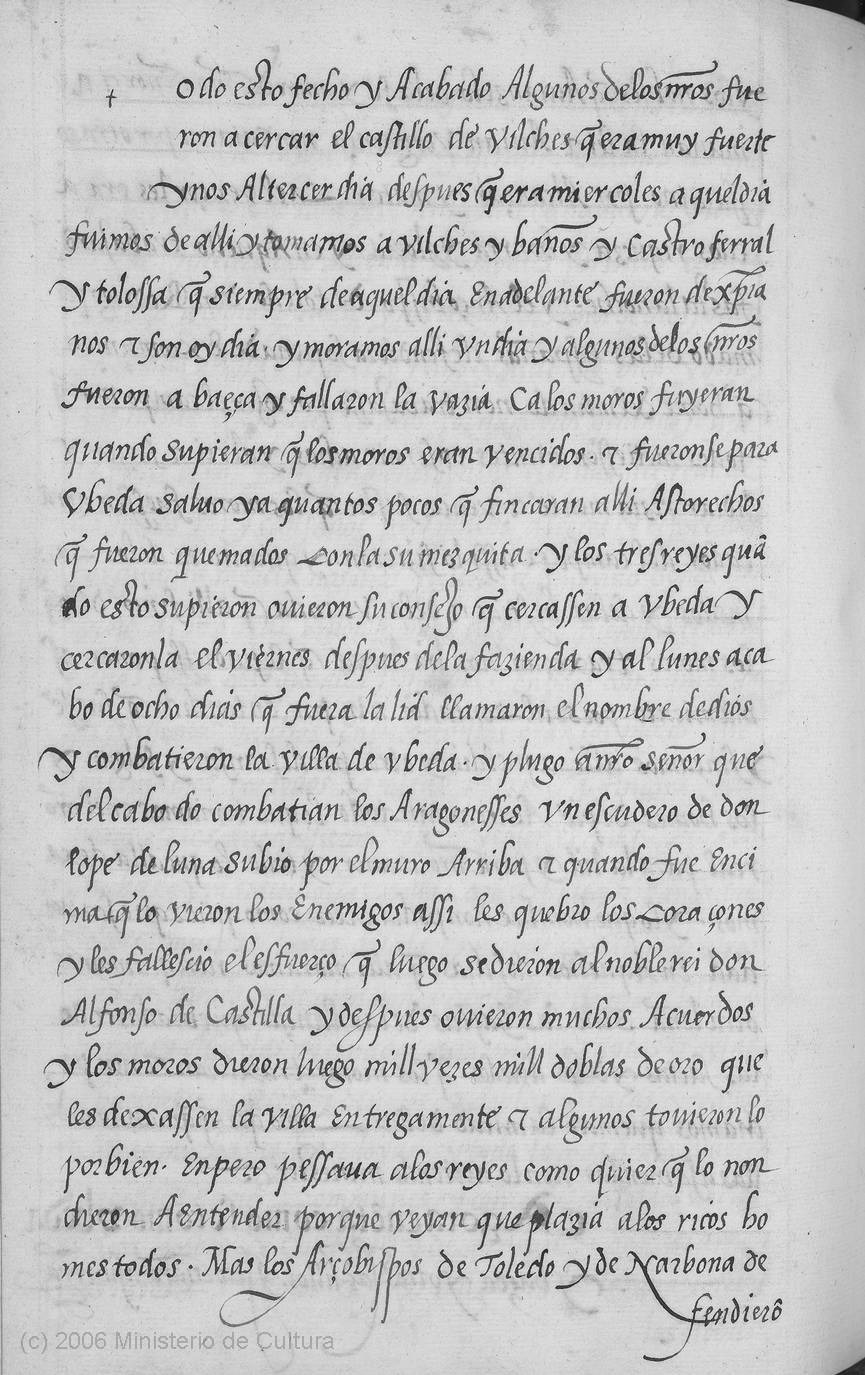 + odo esto fecho y Acabado Algunos delos nr̃os fue
ron a cercar el castillo de Vilches q̃ era muy fuerte
ynos Al tercer dia despues q̃ era miercoles a quel dia
fuimos de alli y tomamos a vilches y baños y Castro ferral
y tolossa q̃ siempre de aquel dia En adelante fueron de xp̃ia
nos τ son oy dia · y moramos alli vn dia y algunos delos nr̃os
fueron a baeça y fallaron la vazia Ca los moros fuyeran
quando supieran q̃ los moros eran vencidos · τ fueronse para
Vbeda saluo ya quantos pocos q̃ fincaran alli Astorechos
q̃ fueron quemados Con la su mezquita · y los tres reyes quã
do esto supieron ouieron su consejo q̃ cercassen a Vbeda y
cercaronla el viernes despues dela fazienda y al lunes aca
bo de ocho dias q̃ fuera la lid llamaron el nombre de dios
y combatieron la villa de vbeda · y plugo a nr̃o señor que
del cabo do combatian los Aragonesses vn escudero de don
lope de luna subio por el muro Arriba τ quando fue Enci
ma q̃ lo vieron los Enemigos assi les quebro los Coraçones
y les fallescio el esfuerço q̃ luego se dieron al noble rei don
Alfonso de Castilla y despues ouieron muchos Acuerdos
y los moros dieron luego mill vezes mill doblas de oro que
les dexassen la villa Entregamente τ algunos touieron lo
por bien · Enpero pessaua a los reyes como quier q̃ lo non
dieron AEntender porque veyan que plazia a los ricos ho
mes todos · Mas los Arçobispos de Toledo y de Narbona de
fendierõ
(c) 2006 Ministerio de Cultura